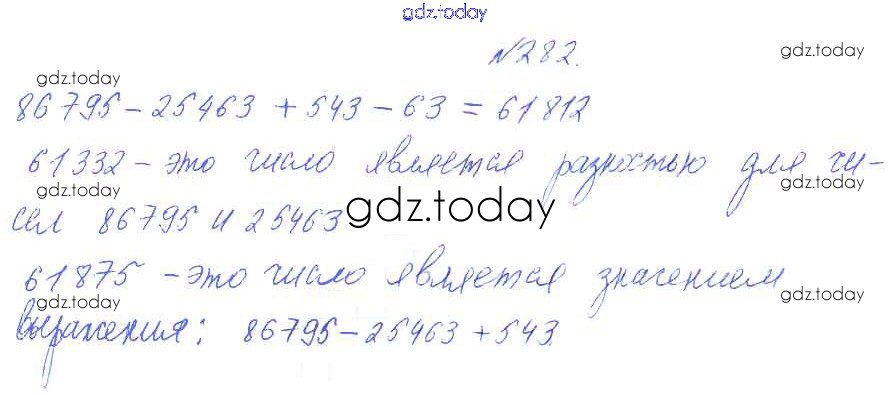 gdz.today
№282.
gdz.today
gdz.today
86795 - 25463 + 543 - 63 = 61812
61332 - это число является разностью для чи-
gdz.today
gdz.today
сел 86795 и 25463
gdz.today
61875 - это число является значением
gdz.today
gdz.today
выражения: 86795 - 25463 + 543.